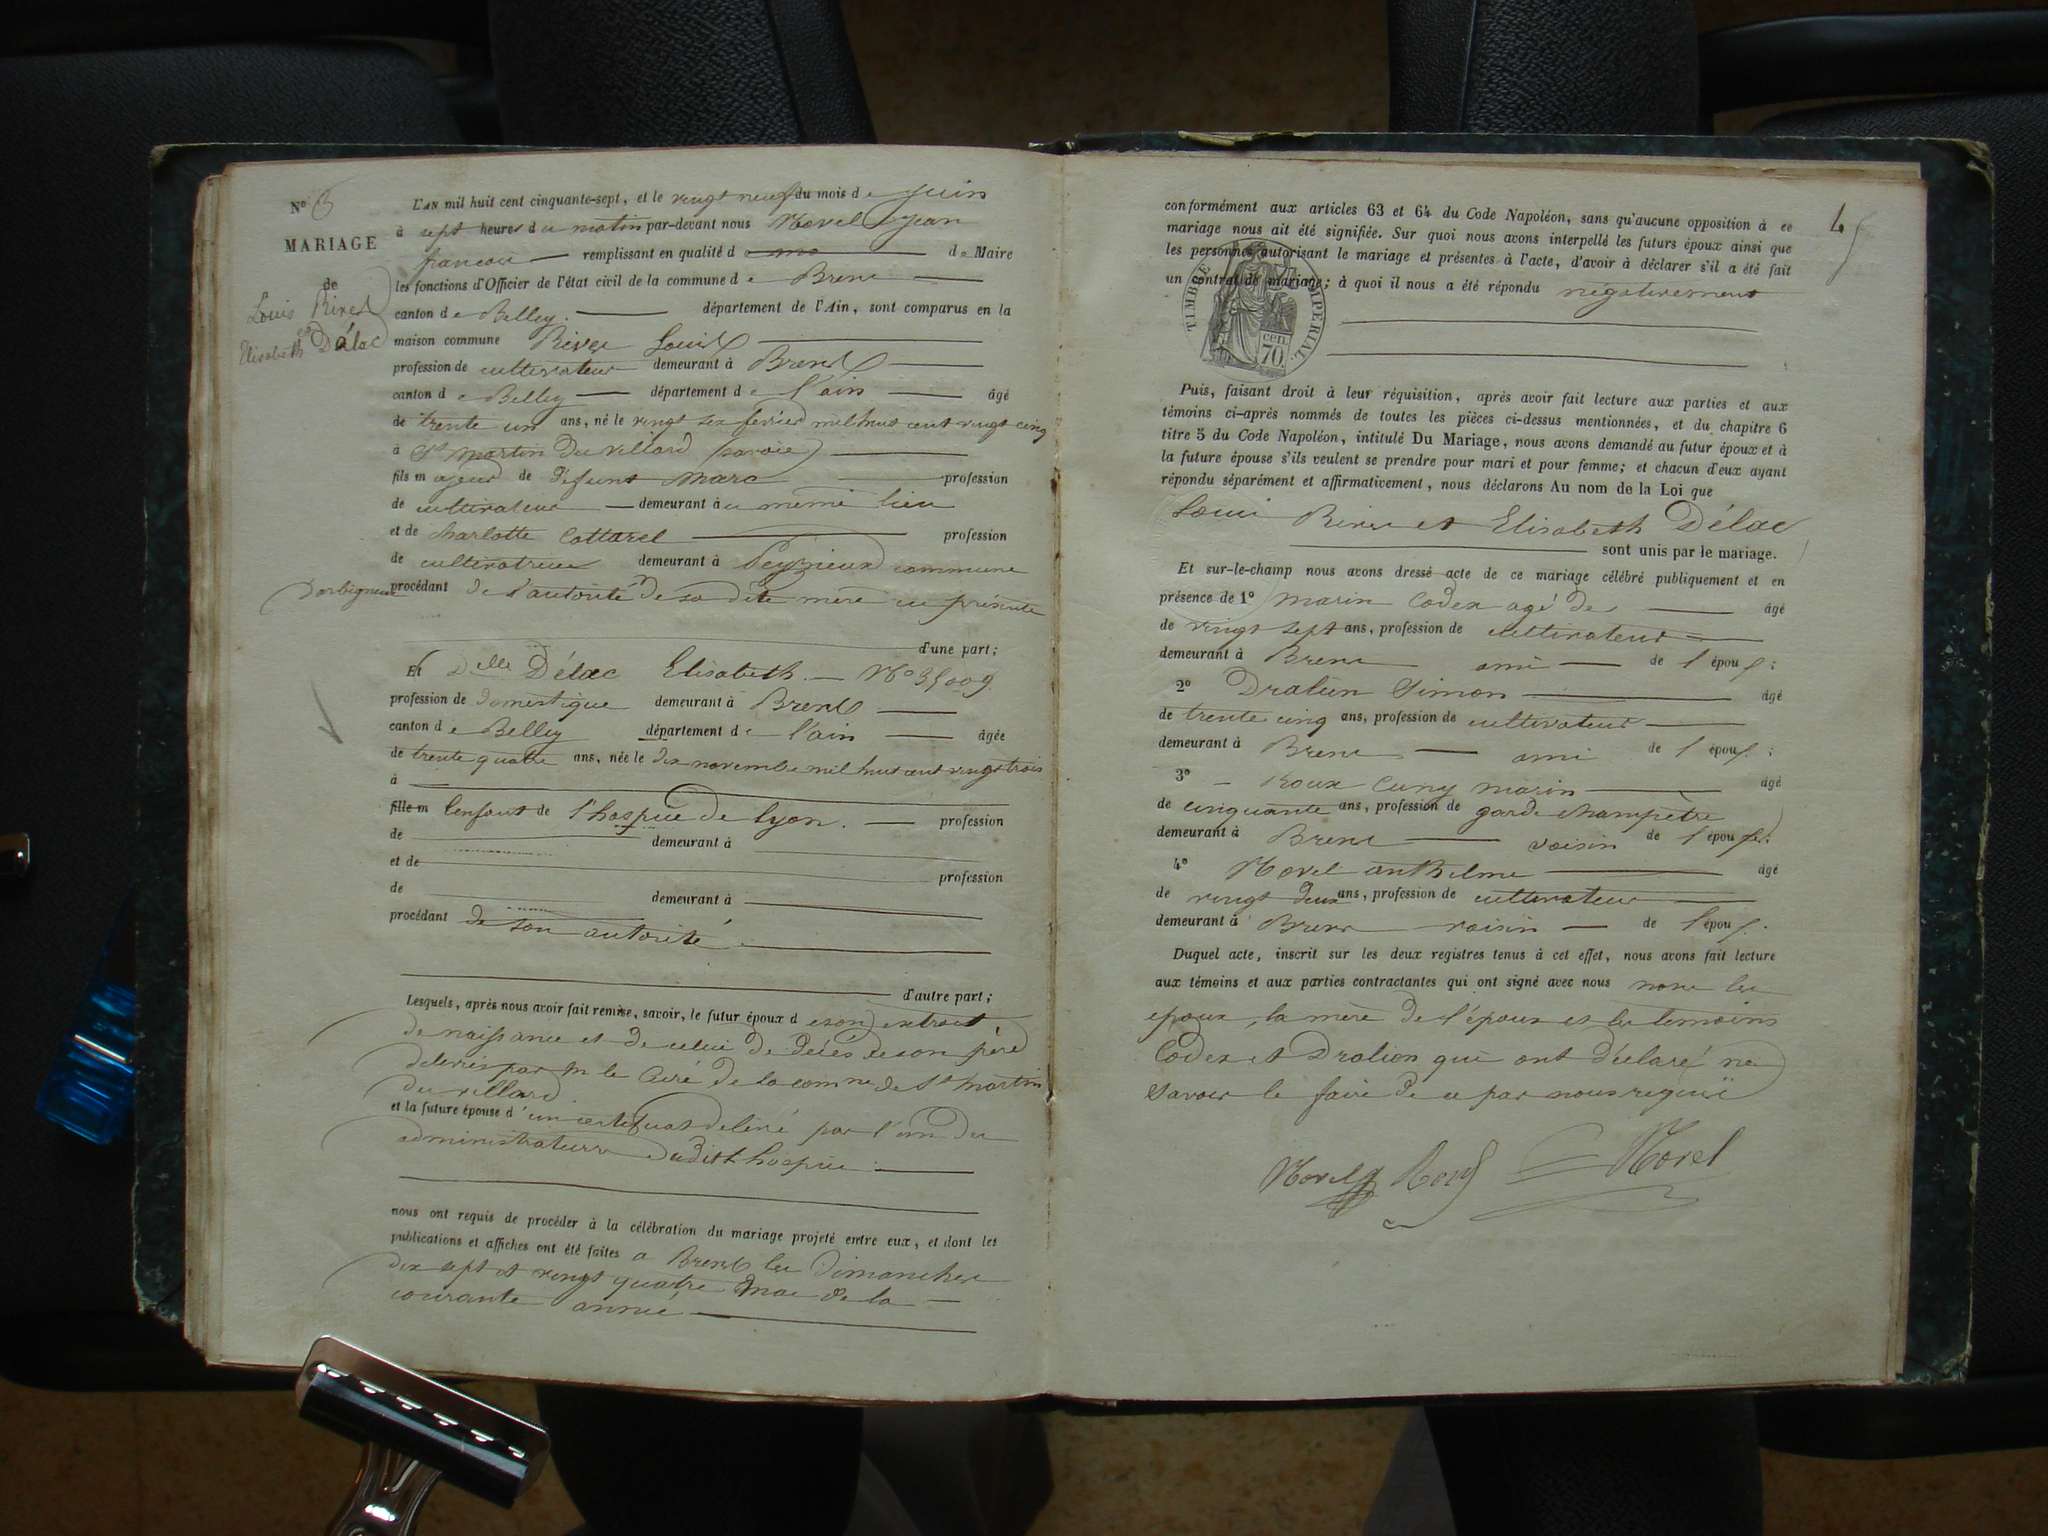 N° 6
MARIAGE
de
Louis Rivet
et
Elisabeth Délac
L'AN mil huit cent cinquante-sept, et le vingt neuf du mois de juin
à sept heures du matin par-devant nous Morel Jean
francois remplissant en qualité de Maire
les fonctions d'Officier de l'état civil de la commune de Brens
canton de Belley. département de l'Ain, sont comparus en la
maison commune Rivet Louis
profession de cultivateur demeurant à Brens
canton de Belley département de l'ain âgé
de trente un ans, né le vingt six fevrier mil huit cent vingt cinq
à St martin du villard (savoie)
fils majeur de Défunt Marc profession
de cultivateur demeurant au même lieu
et de charlotte Cottarel profession
de cultivatrice demeurant à Peyzieux commune
Darbigneux procédant de l'autorité de sa dite mère ici présente
d'une part;
Et Delle Délac Elisabeth. N° 35009.
profession de domestique demeurant à Brens
canton de Belley département de l'ain âgée
de trente quatre ans, née le dix novembre mil huit cent vingt trois
à
fille m l'enfant de l'hospice de lyon. profession
de demeurant à
et de profession
de demeurant à
procédant de son autorité
d'autre part;
Lesquels, après nous avoir fait remise, savoir, le futur époux de son extrait
de naissance et de celui de décés de son père
delivrés par m le Curé de la comne de St martin
du villard
et la future épouse d'un certificat delivré par l'un des
administrateurs dudit hospice
nous ont requis de procéder à la célébration du mariage projeté entre eux, et dont les
publications et affiches ont été faites a Brens les Dimanches
dix sept et vingt quatre mai de la
courante année
45
conformément aux articles 63 et 64 du Code Napoléon, sans qu'aucune opposition à ce
mariage nous ait été signifiée. Sur quoi nous avons interpellé les futurs époux ainsi que
les personnes autorisant le mariage et présentes à l'acte, d'avoir à déclarer s'il a été fait
un contrat de mariage; à quoi il nous a été répondu négativement
TIMBRE IMPERIAL
70 cen.
Puis, faisant droit à leur réquisition, après avoir fait lecture aux parties et aux
témoins ci-après nommés de toutes les pièces ci-dessus mentionnées, et du chapitre 6
titre 5 du Code Napoléon, intitulé Du Mariage, nous avons demandé au futur époux et à
la future épouse s'ils veulent se prendre pour mari et pour femme; et chacun d'eux ayant
répondu séparément et affirmativement, nous déclarons Au nom de la Loi que
Louis Rivet et Elisabeth Délac
sont unis par le mariage.
Et sur-le-champ nous avons dressé acte de ce mariage célébré publiquement et en
présence de 1° Marin Codex agé de âgé
de vingt sept ans, profession de cultivateur
demeurant à Brens ami de l'époux;
2° Dralien Simon âgé
de trente cinq ans, profession de cultivateur
demeurant à Brens ami de l'époux;
3° Roux Cuny marin âgé
de cinquante ans, profession de garde champètre
demeurant à Brens voisin de l'épouse;
4° Morel anthelme âgé
de vingt deux ans, profession de cultivateur
demeurant à Brens voisin de l'époux.
Duquel acte, inscrit sur les deux registres tenus à cet effet, nous avons fait lecture
aux témoins et aux parties contractantes qui ont signé avec nous non les
epoux, la mère de l'époux et les temoins
Codex et Dralien qui ont déclaré ne
savoir le faire de ce par nous requis
Morel Roux Morel